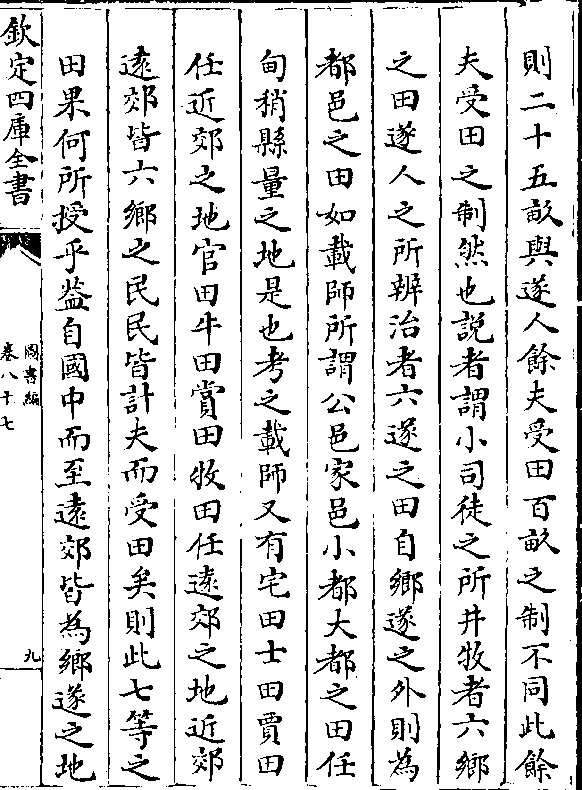 則二十五畝與遂人餘夫受田百畝之制不同此餘
夫受田之制然也説者謂小司徒之所井牧者六鄉
之田遂人之所辨治者六遂之田自鄉遂之外則為
都邑之田如載師所謂公邑家邑小都大都之田任
甸稍縣量之地是也考之載師又有宅田士田賈田
任近郊之地官田牛田賞田牧田任逺郊之地近郊
逺郊皆六鄉之民民皆計夫而受田矣則此七等之
田果何所授乎葢自國中而至逺郊皆為鄉遂之地
欽定四庫全書
圖書編
卷八十七
九